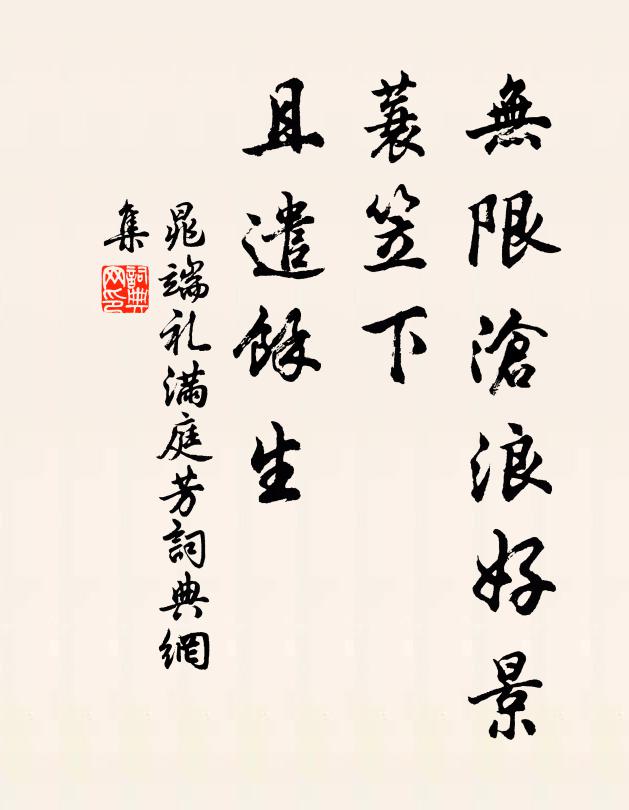 無限滄浪好景
蓑笠下
且遣餘生
晁端礼满庭芳詞典網
集
詞典網印